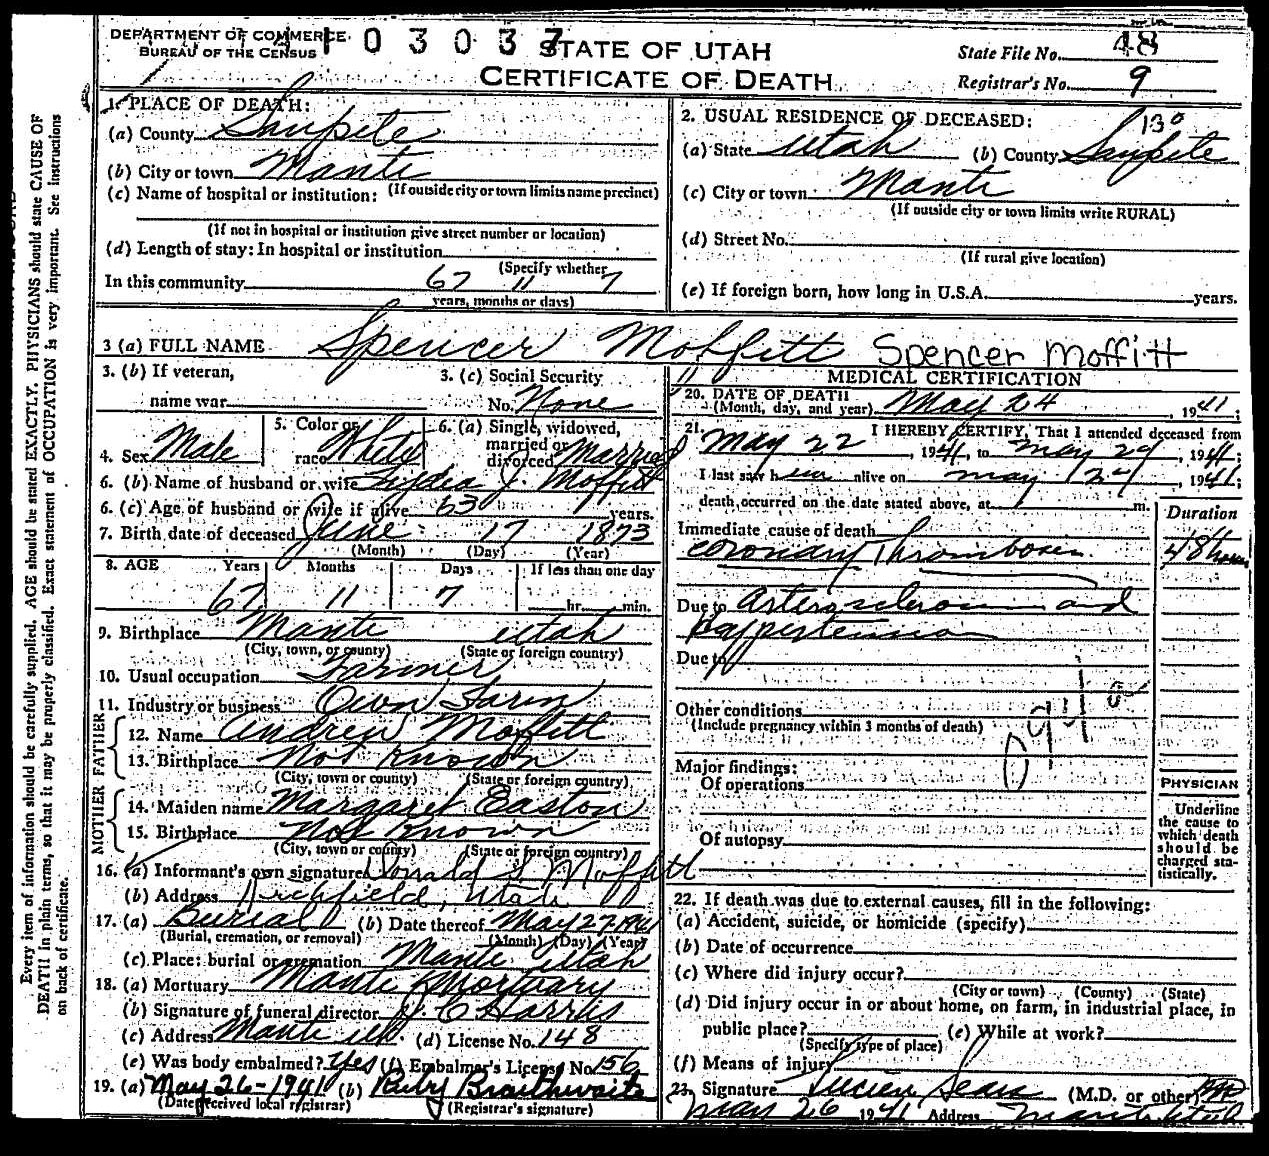 DEPARTMENT OF COMMERCE
BUREAU OF THE CENSUS
103037
STATE OF UTAH
CERTIFICATE OF DEATH
State File No. 48
Registrar's No. 9
Every item of information should be carefully supplied. AGE should be stated EXACTLY. PHYSICIANS should state CAUSE OF
DEATH in plain terms, so that it may be properly classified. Exact statement of OCCUPATION is very important. See instructions
on back of certificate.
1. PLACE OF DEATH:
(a) County Sanpete
(b) City or town Manti
(If outside city or town limits name precinct)
(c) Name of hospital or institution:
(If not in hospital or institution give street number or location)
(d) Length of stay: In hospital or institution
(Specify whether
In this community 67 11 7
years, months or days)
2. USUAL RESIDENCE OF DECEASED: 130
(a) State Utah (b) County Sanpete
(c) City or town Manti
(If outside city or town limits write RURAL)
(d) Street No.
(If rural give location)
(e) If foreign born, how long in U.S.A. years.
3 (a) FULL NAME Spencer Moffitt Spencer Moffitt
3. (b) If veteran,
name war
3. (c) Social Security
No. None
4. Sex Male
5. Color or
race White
6. (a) Single, widowed,
married or
divorced Married
6. (b) Name of husband or wife Lydia J. Moffitt
6. (c) Age of husband or wife if alive 63 years.
7. Birth date of deceased June 17 1873
(Month) (Day) (Year)
8. AGE Years Months Days If less than one day
67 11 7 hr. min.
9. Birthplace Manti Utah
(City, town, or county) (State or foreign country)
10. Usual occupation Farmer
11. Industry or business Own Farm
FATHER
12. Name Andrew Moffitt
13. Birthplace Not Known
(City, town or county) (State or foreign country)
MOTHER
14. Maiden name Margaret Easton
15. Birthplace Not Known
(City, town or county) (State or foreign country)
16. (a) Informant's own signature Donald S. Moffitt
(b) Address Richfield, Utah
17. (a) Burial (b) Date thereof May 27-1941
(Burial, cremation, or removal) (Month) (Day) (Year)
(c) Place: burial or cremation Manti Utah
18. (a) Mortuary Manti Mortuary
(b) Signature of funeral director J. C. Harris
(c) Address Manti Ut. (d) License No. 148
(e) Was body embalmed? Yes (f) Embalmer's License No. 156
19. (a) May 26-1941 (b) Ruby Braithwaite
(Date received local registrar) (Registrar's signature)
MEDICAL CERTIFICATION
20. DATE OF DEATH
(Month, day, and year) May 24, 1941;
21. I HEREBY CERTIFY, That I attended deceased from
May 22, 1941, to May 24, 1941;
I last saw him alive on May 24, 1941;
death occurred on the date stated above, at m.
Duration
Immediate cause of death
Coronary Thrombosis 48 hours
Due to Arterosclerosis and
Hypertension
Due to
Other conditions
(Include pregnancy within 3 months of death)
094a
Major findings:
Of operations
Of autopsy
PHYSICIAN
Underline
the cause to
which death
should be
charged sta-
tistically.
22. If death was due to external causes, fill in the following:
(a) Accident, suicide, or homicide (specify)
(b) Date of occurrence
(c) Where did injury occur?
(City or town) (County) (State)
(d) Did injury occur in or about home, on farm, in industrial place, in
public place? (e) While at work?
(Specify type of place)
(f) Means of injury
23. Signature Lucien Sears (M.D. or other) MD
May 26 1941 Address Manti Utah